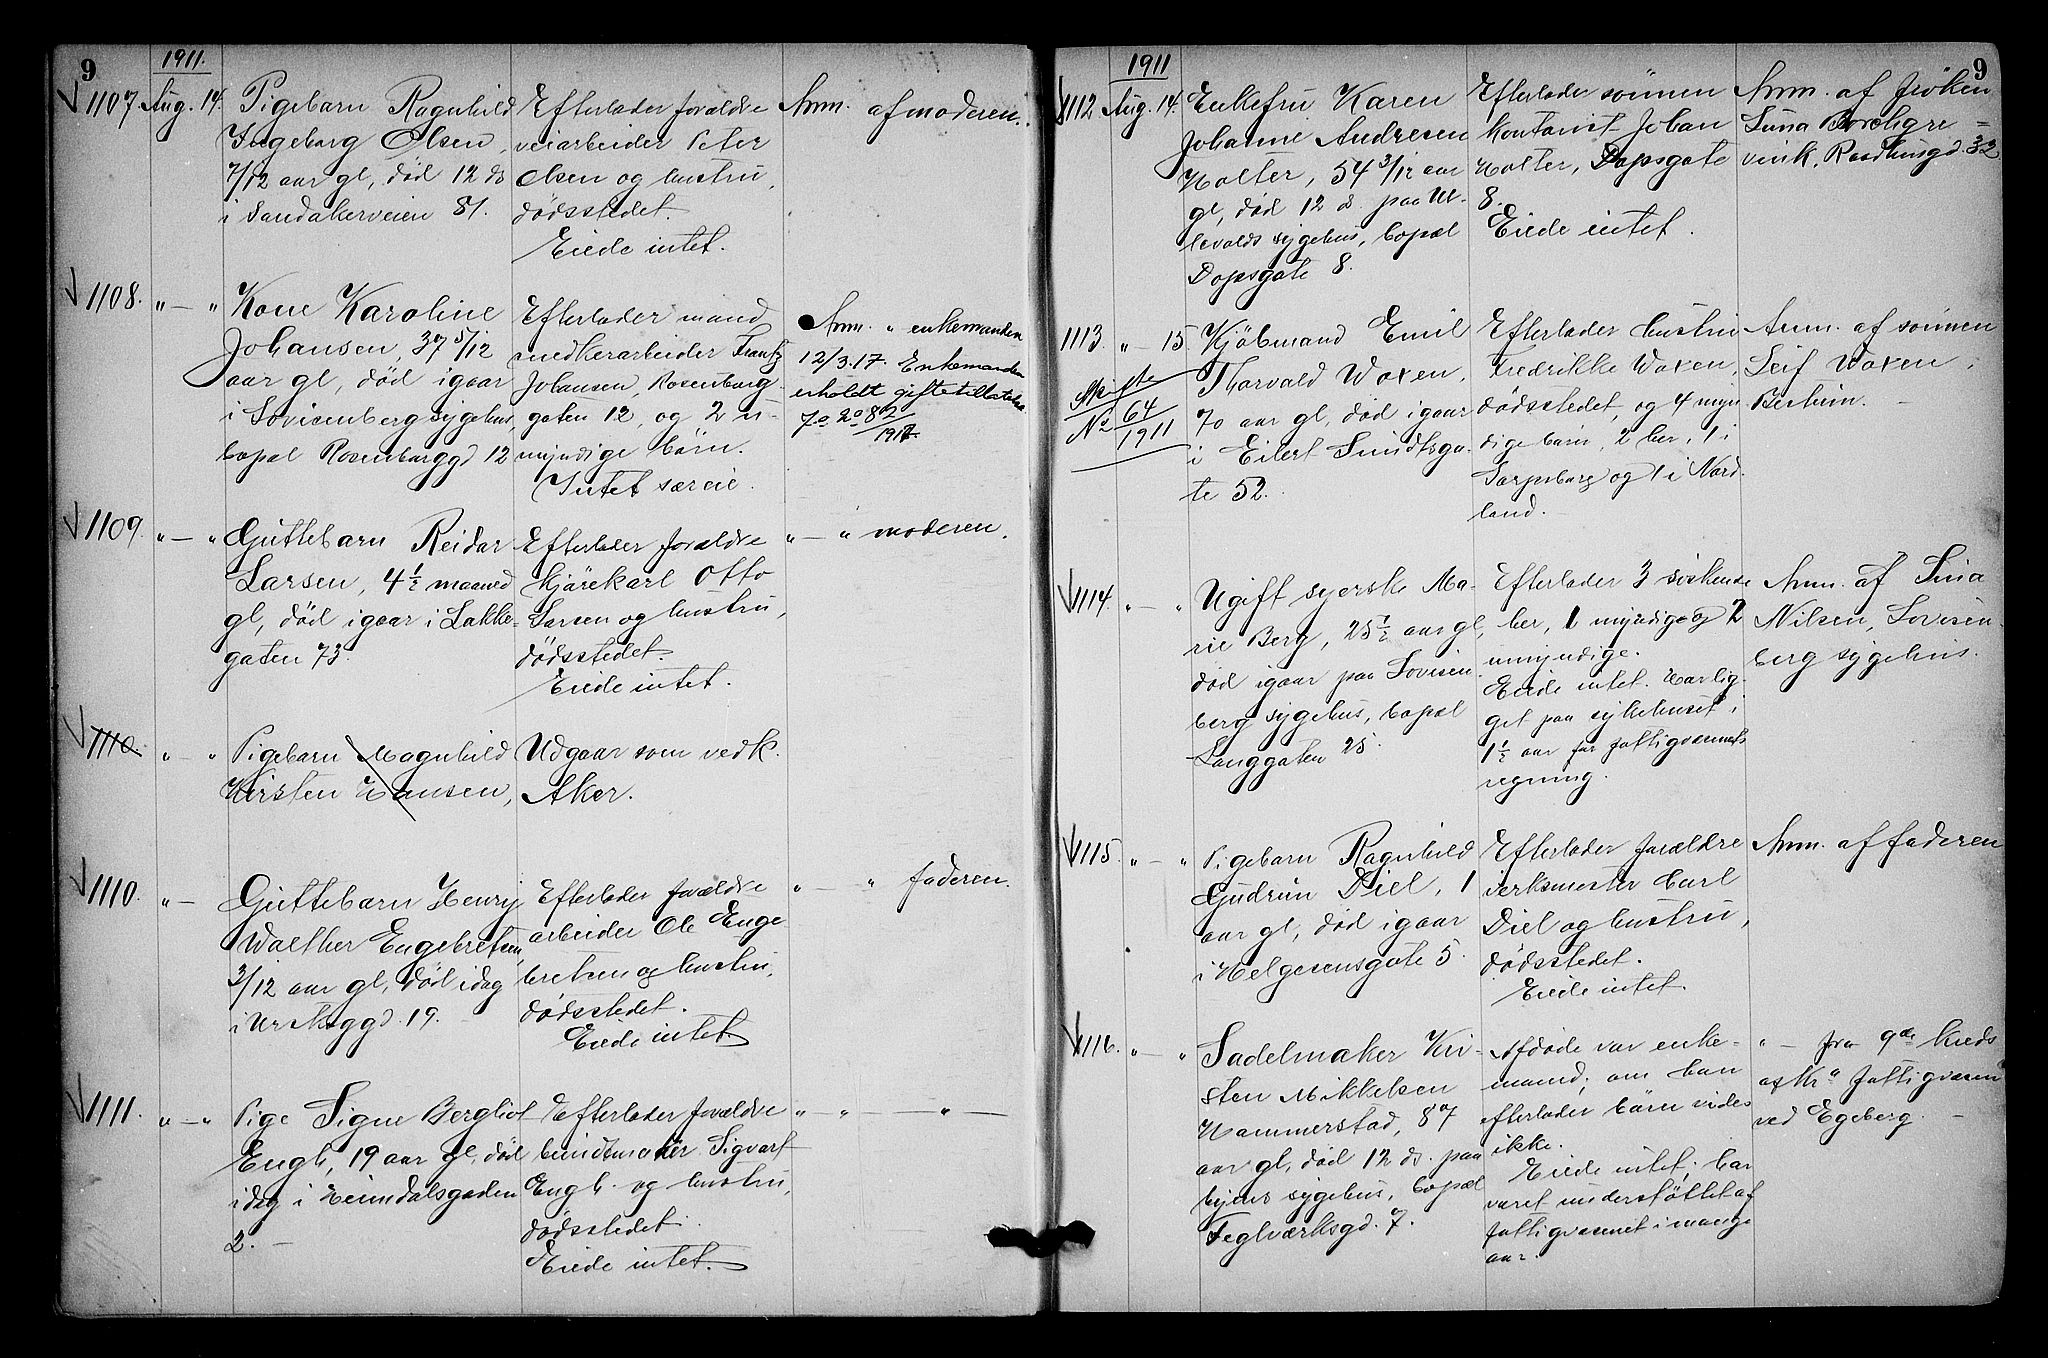 9
1911.
1107 Aug. 14. Pigebarn Ragnhild
Ingeborg Olsen,
7/12 aar gl, död 12 ds
i Sandakerveien 81.
Efterlader forældre
veiarbeider Peter
Olsen og hustru,
dödsstedet.
Eiede intet.
Anm. af moderen.
1108. " — " Kone Karoline
Johansen, 37 5/12
aar gl, död igaar
i Lovisenberg sygehus,
bopæl Rosenborggd 12
Efterlader mand
Frantz
Johansen, Rosenborg-
gaten 12, og 2 u-
myndige börn.
Intet særeie.
Anm. " enkemanden
12/3.17. Enkemanden
erholdt giftetilladelse
1109. " — " Guttebarn Reidar
Larsen, 4 1/2 maaned
gl, död igaar i Lakke-
gaten 73.
Efterlader forældre
kjörekarl Otto
Larsen og hustru,
dödsstedet.
Eiede intet.
" — " moderen.
1110. " — " Pigebarn Magnhild
Kirsten Hansen,
Udgaar som vedk.
Aker.
1110. " — Guttebarn Henry
Walther Engebretsen,
3/12 aar gl, död idag
i Urskoggd. 19.
Efterlader forældre
arbeider Ole Enge-
bretsen og hustru,
dödsstedet.
Eiede intet.
" — " faderen.
1111. " — " Pige Signe Bergliot
Engh, 19 aar gl, död
idag i Heimdalsgaden
2. —
Efterlader forældre
bundtmaker Sigvart
Engh og hustru,
dödsstedet.
Eiede intet.
" " — " —
9
1911
1112 Aug. 14. Enkefru Karen
Johanne Andresen
Holter, 54 3/12 aar
gl, död 12 ds. paa Ul-
levolds sygehus, bopæl
Dopsgate 8.
Efterlader sönnen
kontorist Johan
Holter, Dopsgate
8.
Eiede intet.
Anm. af fröken
Luna Borchgre-
vink, Raadhusgd. 32
1113. " — 15 Kjöbmand Emil
Thorvald Woxen,
70 aar gl, död igaar
i Eilert Sundtsga-
te 52.
Skifte
No 64
1911
Efterlader hustru
Fredrikke Woxen,
dödsstedet, og 4 myn
dige börn, 2 her, 1 i
Sarpsborg og 1 i Nord-
land.
Anm. af sönnen
Leif Woxen,
Bestum.
1114. " — " Ugift syerske Ma-
rie Berg, 25 1/2 aar gl,
död igaar paa Lovisen
berg sygehus, bopæl
Langgaten 25.
Efterlader 3 söskende
her, 1 myndig og 2
umyndige.
Eiede intet. Har lig-
get paa sykehuset i
1 1/2 aar for fattigvæsnets
regning.
Anm. af Lina
Nilsen, Lovisen-
berg sygehus.
1115. " — " Pigebarn Ragnhild
Gudrun Diel, 1
aar gl, död igaar
i Helgesensgate 5.
Efterlader forældre
verksmester Carl
Diel og hustru,
dödsstedet.
Eiede intet.
Anm. af faderen
1116. " — " Sadelmaker Kri-
sten Mikkelsen
Hammerstad, 87
aar gl, död 12 ds. paa
byens sygehus, bopæl
Teglværksgd. 7.
Afdöde var enke-
mand; om han
efterlader börn vides
ikke.
Eiede intet; har
været understöttet af
fattigvæsenet i mange
aar.
" — fra 9de kreds
af Kra fattigvæsen
ved Egeberg. —